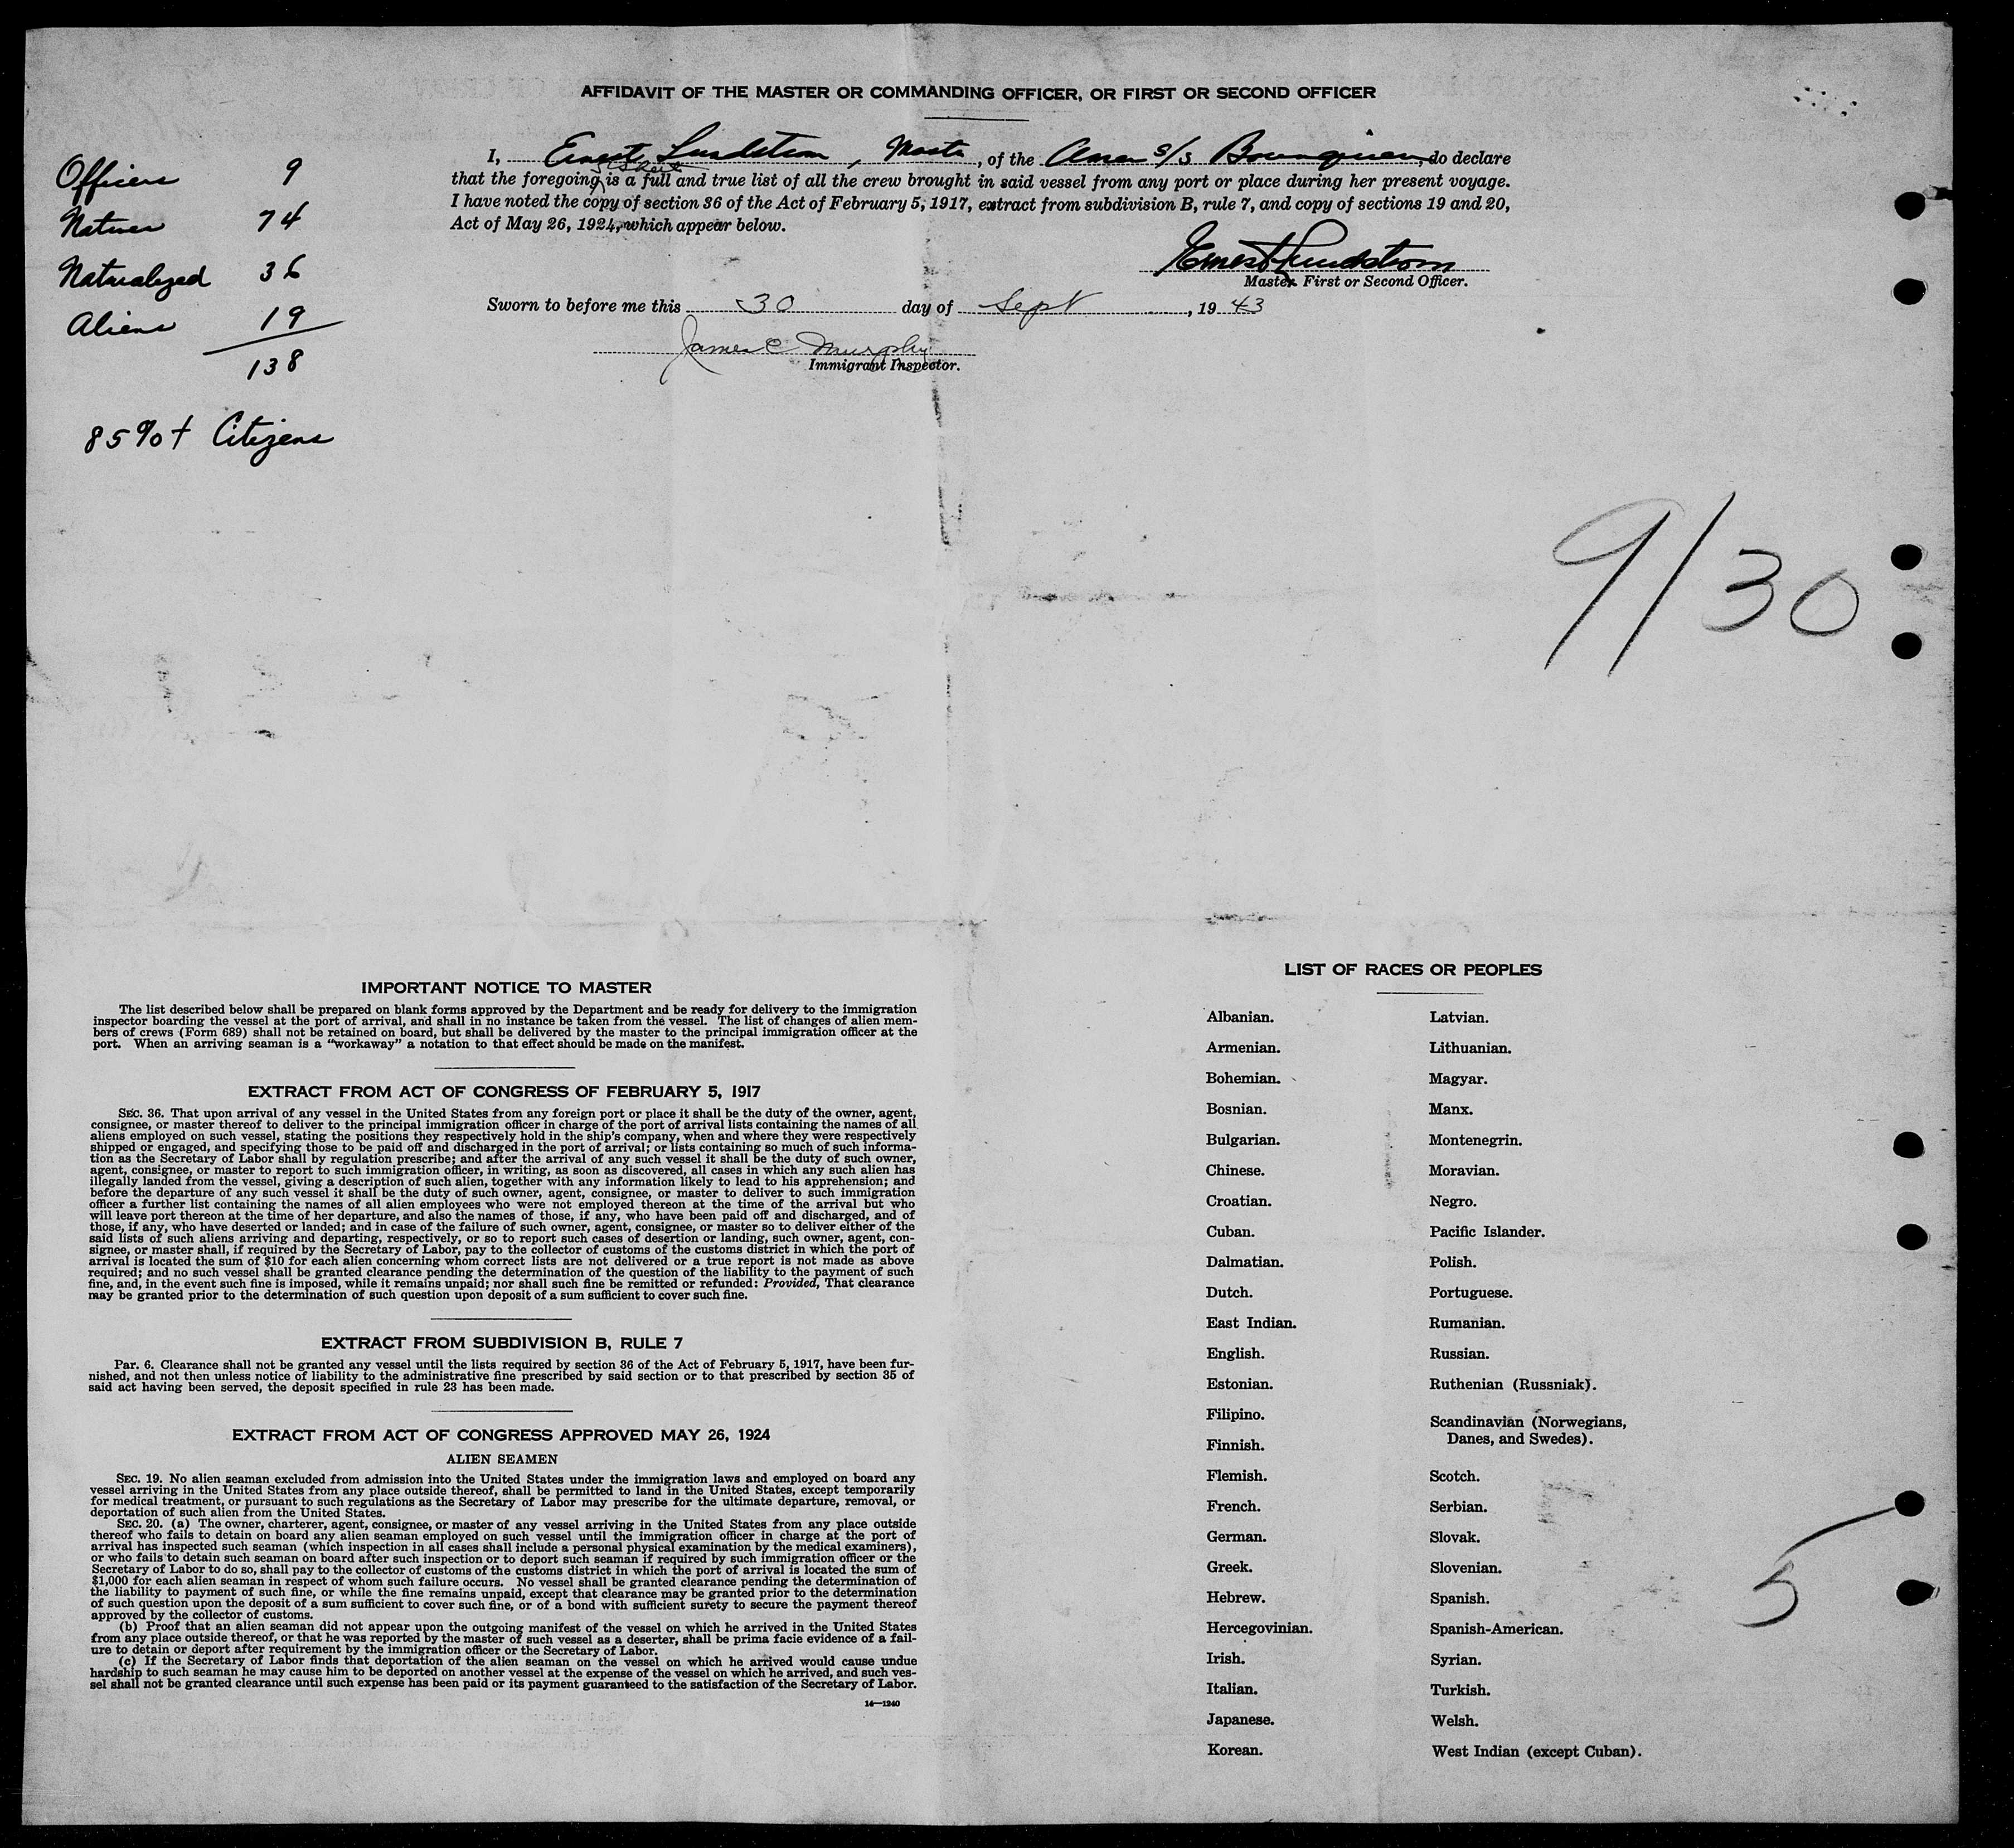 AFFIDAVIT OF THE MASTER OR COMMANDING OFFICER, OR FIRST OR SECOND OFFICER
I, Ernest Lundstrom, Master, of the Amer s/s Borinquen, do declare
that the foregoing is a full and true list of all the crew brought in said vessel from any port or place during her present voyage.
I have noted the copy of section 36 of the Act of February 5, 1917, extract from subdivision B, rule 7, and copy of sections 19 and 20,
Act of May 26, 1924, which appear below.
Ernest Lundstrom
Master First or Second Officer.
Sworn to before me this 30 day of Sept, 1943
James C Murphy
Immigrant Inspector.
Officers 9
Natives 74
Naturalized 36
Aliens 19
138
85%+ Citizens
9/30
IMPORTANT NOTICE TO MASTER
The list described below shall be prepared on blank forms approved by the Department and be ready for delivery to the immigration
inspector boarding the vessel at the port of arrival, and shall in no instance be taken from the vessel. The list of changes of alien mem-
bers of crews (Form 689) shall not be retained on board, but shall be delivered by the master to the principal immigration officer at the
port. When an arriving seaman is a "workaway" a notation to that effect should be made on the manifest.
EXTRACT FROM ACT OF CONGRESS OF FEBRUARY 5, 1917
SEC. 36. That upon arrival of any vessel in the United States from any foreign port or place it shall be the duty of the owner, agent,
consignee, or master thereof to deliver to the principal immigration officer in charge of the port of arrival lists containing the names of all
aliens employed on such vessel, stating the positions they respectively hold in the ship's company, when and where they were respectively
shipped or engaged, and specifying those to be paid off and discharged in the port of arrival; or lists containing so much of such informa-
tion as the Secretary of Labor shall by regulation prescribe; and after the arrival of any such vessel it shall be the duty of such owner,
agent, consignee, or master to report to such immigration officer, in writing, as soon as discovered, all cases in which any such alien has
illegally landed from the vessel, giving a description of such alien, together with any information likely to lead to his apprehension; and
before the departure of any such vessel it shall be the duty of such owner, agent, consignee, or master to deliver to such immigration
officer a further list containing the names of all alien employees who were not employed thereon at the time of the arrival but who
will leave port thereon at the time of her departure, and also the names of those, if any, who have been paid off and discharged, and of
those, if any, who have deserted or landed; and in case of the failure of such owner, agent, consignee, or master so to deliver either of the
said lists of such aliens arriving and departing, respectively, or so to report such cases of desertion or landing, such owner, agent, con-
signee, or master shall, if required by the Secretary of Labor, pay to the collector of customs of the customs district in which the port of
arrival is located the sum of $10 for each alien concerning whom correct lists are not delivered or a true report is not made as above
required; and no such vessel shall be granted clearance pending the determination of the question of the liability to the payment of such
fine, and, in the event such fine is imposed, while it remains unpaid; nor shall such fine be remitted or refunded: Provided, That clearance
may be granted prior to the determination of such question upon deposit of a sum sufficient to cover such fine.
EXTRACT FROM SUBDIVISION B, RULE 7
Par. 6. Clearance shall not be granted any vessel until the lists required by section 36 of the Act of February 5, 1917, have been fur-
nished, and not then unless notice of liability to the administrative fine prescribed by said section or to that prescribed by section 35 of
said act having been served, the deposit specified in rule 23 has been made.
EXTRACT FROM ACT OF CONGRESS APPROVED MAY 26, 1924
ALIEN SEAMEN
SEC. 19. No alien seaman excluded from admission into the United States under the immigration laws and employed on board any
vessel arriving in the United States from any place outside thereof, shall be permitted to land in the United States, except temporarily
for medical treatment, or pursuant to such regulations as the Secretary of Labor may prescribe for the ultimate departure, removal, or
deportation of such alien from the United States.
SEC. 20. (a) The owner, charterer, agent, consignee, or master of any vessel arriving in the United States from any place outside
thereof who fails to detain on board any alien seaman employed on such vessel until the immigration officer in charge at the port of
arrival has inspected such seaman (which inspection in all cases shall include a personal physical examination by the medical examiners),
or who fails to detain such seaman on board after such inspection or to deport such seaman if required by such immigration officer or the
Secretary of Labor to do so, shall pay to the collector of customs of the customs district in which the port of arrival is located the sum of
$1,000 for each alien seaman in respect of whom such failure occurs. No vessel shall be granted clearance pending the determination of
the liability to payment of such fine, or while the fine remains unpaid, except that clearance may be granted prior to the determination
of such question upon the deposit of a sum sufficient to cover such fine, or of a bond with sufficient surety to secure the payment thereof
approved by the collector of customs.
(b) Proof that an alien seaman did not appear upon the outgoing manifest of the vessel on which he arrived in the United States
from any place outside thereof, or that he was reported by the master of such vessel as a deserter, shall be prima facie evidence of a fail-
ure to detain or deport after requirement by the immigration officer or the Secretary of Labor.
(c) If the Secretary of Labor finds that deportation of the alien seaman on the vessel on which he arrived would cause undue
hardship to such seaman he may cause him to be deported on another vessel at the expense of the vessel on which he arrived, and such ves-
sel shall not be granted clearance until such expense has been paid or its payment guaranteed to the satisfaction of the Secretary of Labor.
14—1240
LIST OF RACES OR PEOPLES
Albanian.
Armenian.
Bohemian.
Bosnian.
Bulgarian.
Chinese.
Croatian.
Cuban.
Dalmatian.
Dutch.
East Indian.
English.
Estonian.
Filipino.
Finnish.
Flemish.
French.
German.
Greek.
Hebrew.
Hercegovinian.
Irish.
Italian.
Japanese.
Korean.
Latvian.
Lithuanian.
Magyar.
Manx.
Montenegrin.
Moravian.
Negro.
Pacific Islander.
Polish.
Portuguese.
Rumanian.
Russian.
Ruthenian (Russniak).
Scandinavian (Norwegians,
Danes, and Swedes).
Scotch.
Serbian.
Slovak.
Slovenian.
Spanish.
Spanish-American.
Syrian.
Turkish.
Welsh.
West Indian (except Cuban).
5